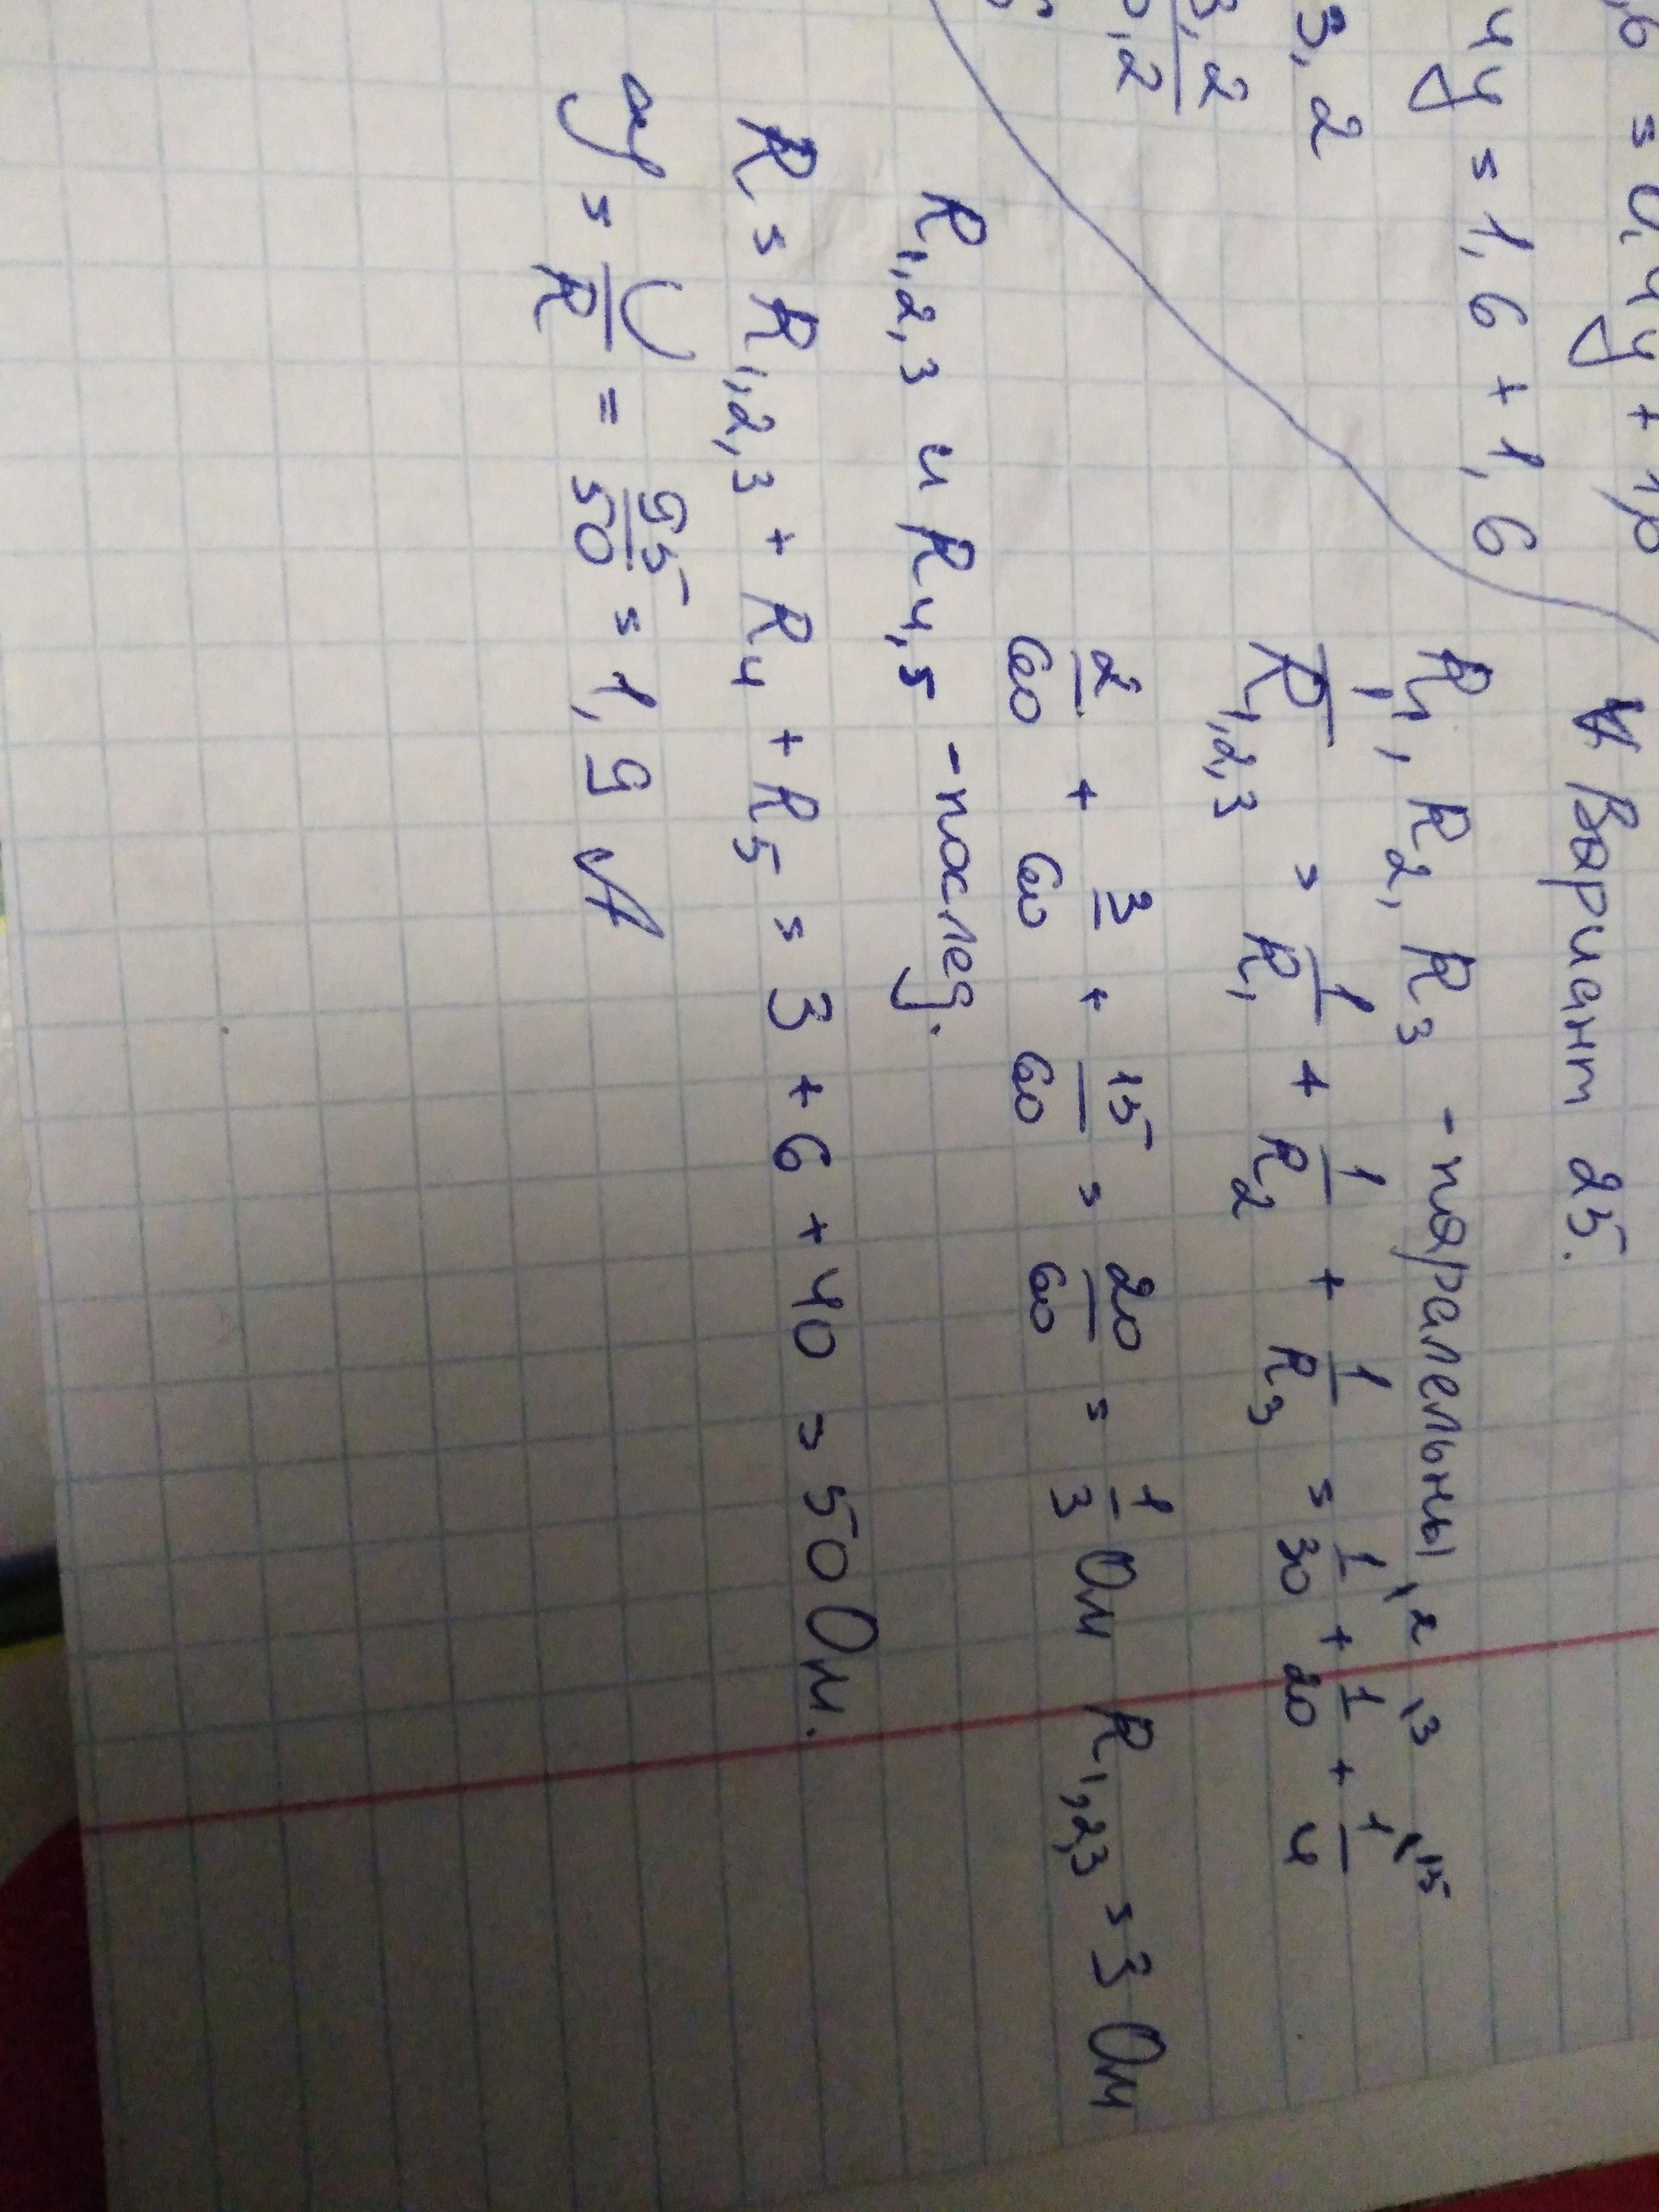 ,6 = 0,4y + 1,p
4y = 1,6 + 1,6
3,2
3,2
0,2
Вариант 25.
R1, R2, R3 - паралельны
1/R1,2,3 = 1/R1 + 1/R2 + 1/R3 = 1/30 \2 + 1/20 \3 + 1/4 \15
2/60 + 3/60 + 15/60 = 20/60 = 1/3 Ом R1,2,3 = 3 Ом
R1,2,3 и R4,5 - послед.
R = R1,2,3 + R4 + R5 = 3 + 6 + 40 = 50 Ом.
У = U/R = 95/50 = 1,9 А